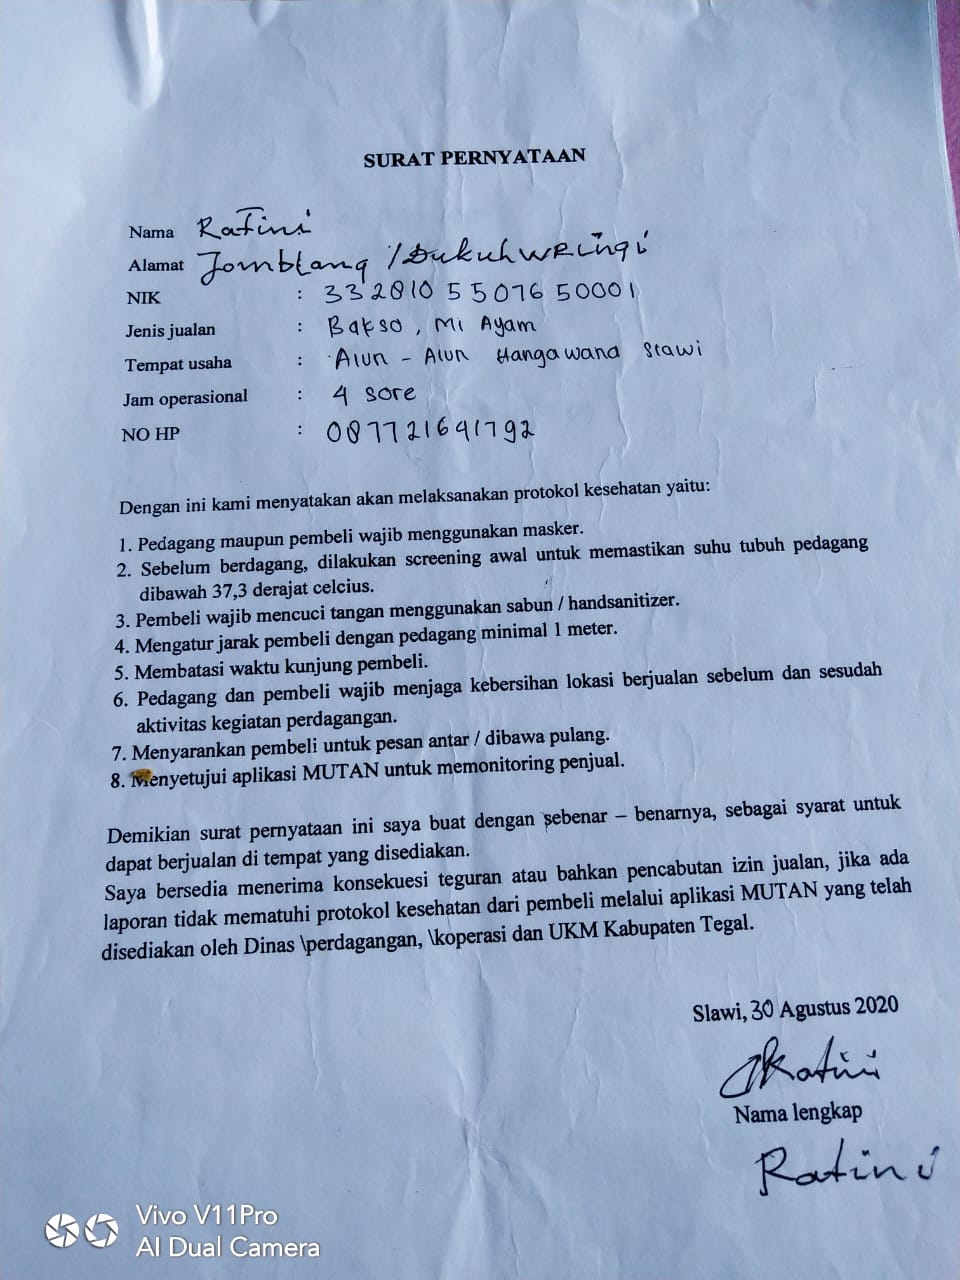 SURAT PERNYATAAN
Nama Ratini
Alamat Jomblang / Dukuhwringi
NIK : 3328105507650001
Jenis jualan : Bakso, Mi Ayam
Tempat usaha : Alun - Alun Hangawana Slawi
Jam operasional : 4 sore
NO HP : 087721641792
Dengan ini kami menyatakan akan melaksanakan protokol kesehatan yaitu:
1. Pedagang maupun pembeli wajib menggunakan masker.
2. Sebelum berdagang, dilakukan screening awal untuk memastikan suhu tubuh pedagang
dibawah 37,3 derajat celcius.
3. Pembeli wajib mencuci tangan menggunakan sabun / handsanitizer.
4. Mengatur jarak pembeli dengan pedagang minimal 1 meter.
5. Membatasi waktu kunjung pembeli.
6. Pedagang dan pembeli wajib menjaga kebersihan lokasi berjualan sebelum dan sesudah
aktivitas kegiatan perdagangan.
7. Menyarankan pembeli untuk pesan antar / dibawa pulang.
8. Menyetujui aplikasi MUTAN untuk memonitoring penjual.
Demikian surat pernyataan ini saya buat dengan sebenar – benarnya, sebagai syarat untuk
dapat berjualan di tempat yang disediakan.
Saya bersedia menerima konsekuesi teguran atau bahkan pencabutan izin jualan, jika ada
laporan tidak mematuhi protokol kesehatan dari pembeli melalui aplikasi MUTAN yang telah
disediakan oleh Dinas \perdagangan, \koperasi dan UKM Kabupaten Tegal.
Slawi, 30 Agustus 2020
Ratini
Nama lengkap
Ratini
Vivo V11Pro
AI Dual Camera